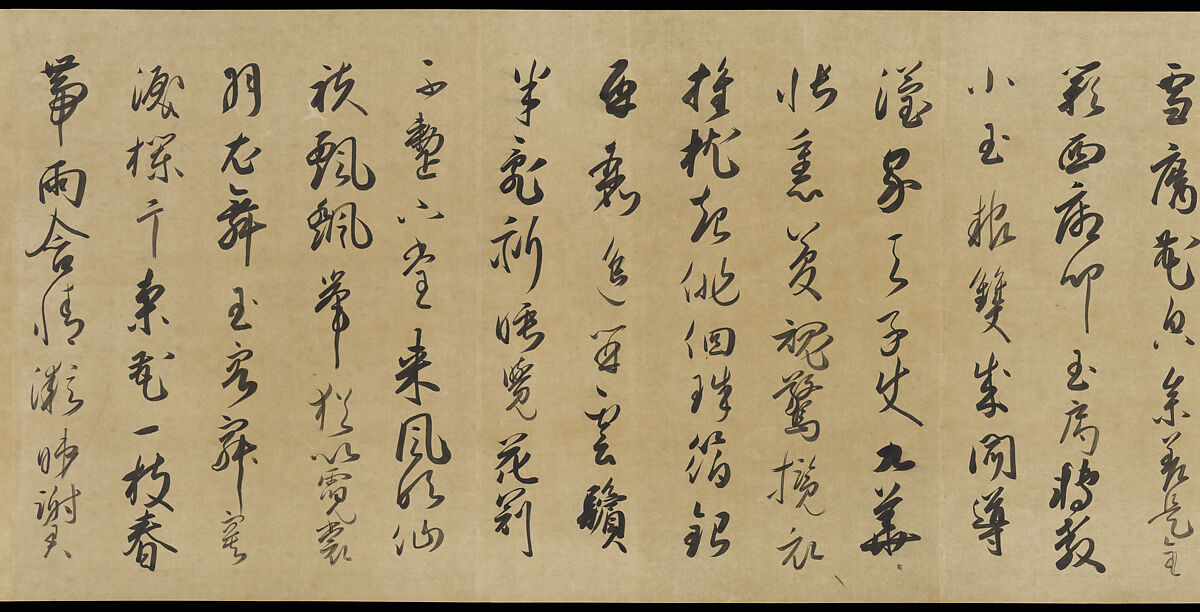 雪膚花皃參差是金
闕西廂叩玉扃轉教
小玉報雙成聞道
漢家天子使九華
帳裏夢魂驚攬衣
推枕起徘徊珠箔銀
屏邐迤開雲鬢
半新睡覺花冠
不整下堂來風吹仙
袂飄飄舉猶似霓裳
羽衣舞玉容寂寞
淚欄干梨花一枝春
帶雨含情凝睇謝君